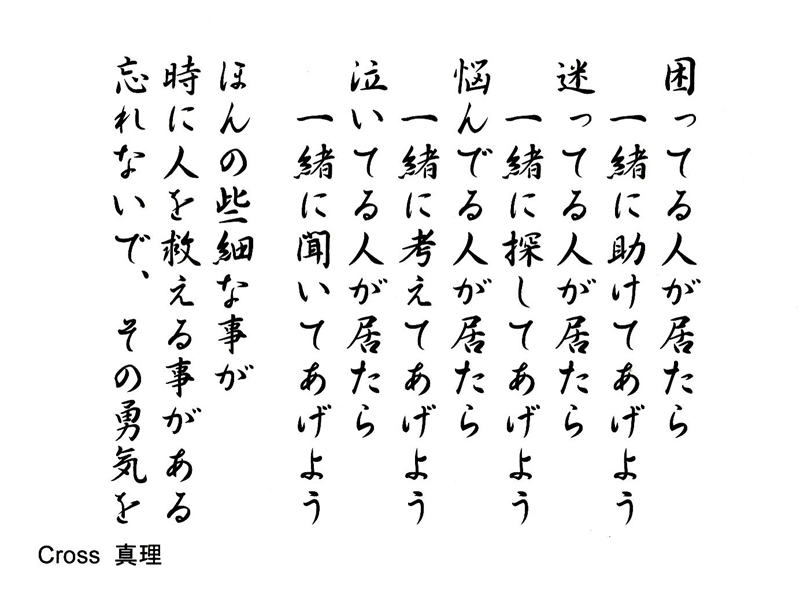 困ってる人が居たら
一緒に助けてあげよう
迷ってる人が居たら
一緒に探してあげよう
悩んでる人が居たら
一緒に考えてあげよう
泣いてる人が居たら
一緒に聞いてあげよう
ほんの些細な事が
時に人を救える事がある
忘れないで、その勇気を
Cross 真理